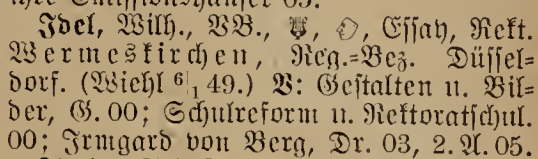 Idel, Wilh., VB., Essay, Rekt.
Wermeskirchen, Reg.=Bez. Düssel=
dorf. (Wiehl 6|1 49.) V: Gestalten u. Bil=
der, G. 00; Schulreform u. Rektoratschul.
00; Irmgard von Berg, Dr. 03, 2. A. 05.